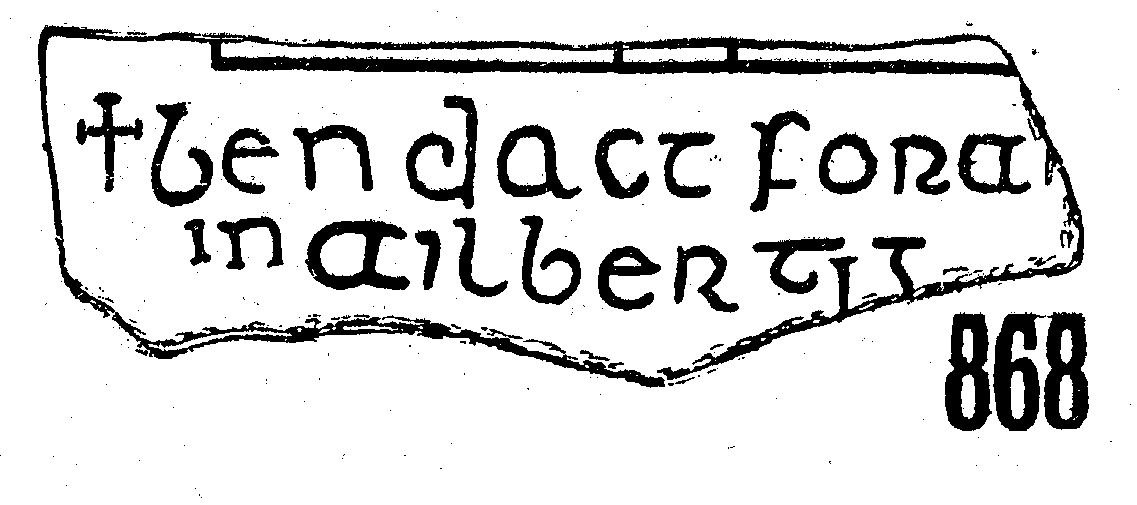 ✝ bendact fora
in ailbertig